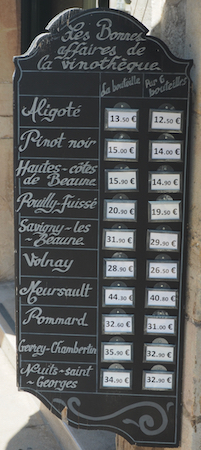 Les Bonnes
affaires de
la vinothèque
La bouteille Par 6 bouteilles
Aligoté 13.50 € 12.50 €
Pinot noir 15.00 € 14.00 €
Hautes-côtes
de Beaune 15.90 € 14.90 €
Pouilly-Fuissé 20.90 € 19.50 €
Savigny-les
-Beaune 31.90 € 29.90 €
Volnay 28.90 € 26.50 €
Meursault 44.30 € 40.80 €
Pommard 32.60 € 31.00 €
Gevrey-Chambertin 35.90 € 32.90 €
Nuits-saint
-Georges 34.90 € 32.90 €